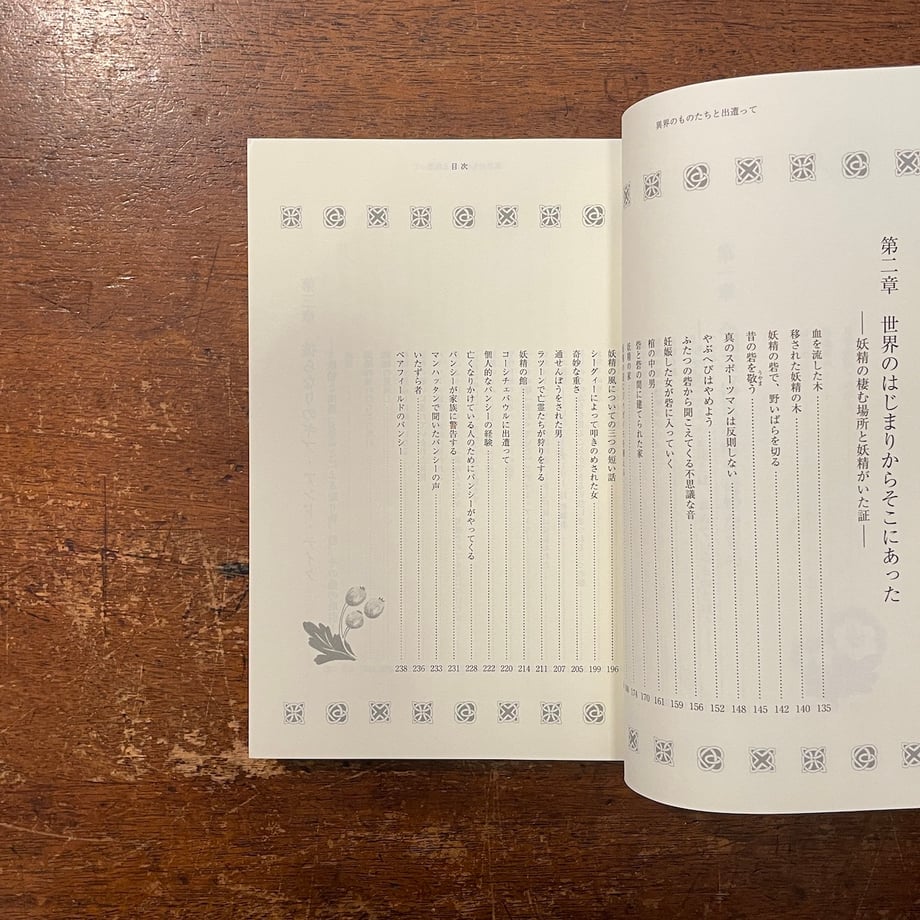 異界のものたちと出遭って
第二章 世界のはじまりからそこにあった
―妖精の棲む場所と妖精がいた証―
血を流した木 135
移された妖精の木 140
妖精の砦で、野いばらを切る 142
昔の砦を敬う 145
うやま
真のスポーツマンは反則しない 148
やぶへびはやめよう 152
ふたつの砦から聞こえてくる不思議な音 156
妊娠した女が砦に入っていく 159
棺の中の男 161
砦と砦の間に建てられた家 170
妖精の家 174
目次
妖精の風についての三つの短い話 196
シーグィーによって叩きのめされた女 199
奇妙な重さ 205
通せんぼうをされた男 207
ラツーンで亡霊たちが狩りをする 211
妖精の館 214
コーシチェバウルに出遭って 220
個人的なバンシーの経験 222
亡くなりかけている人のためにバンシーがやってくる 228
バンシーが家族に警告する 231
マンハッタンで聞いたバンシーの声 233
いたずら者 236
ベアフィールドのバンシー 238